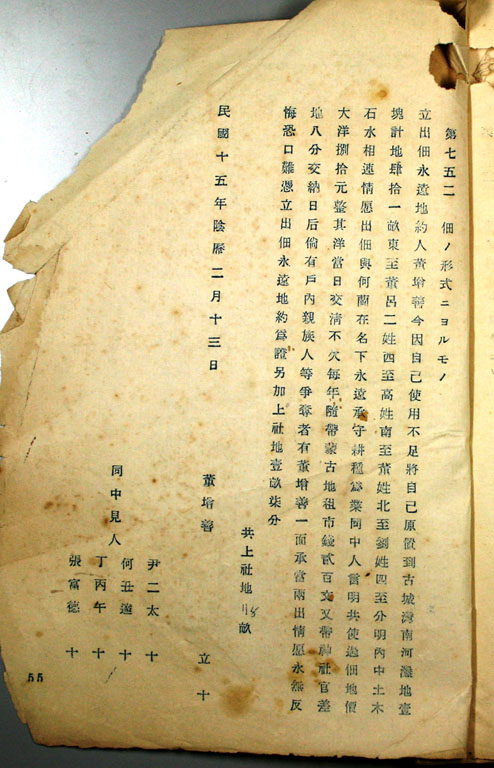 第七五二　佃ノ形式ニヨルモノ
立出佃永遠地約人董增善今因自己使用不足將自己原置到古城灣南河灘地壹
塊計地肆拾一畝東至董呂二姓西至高姓南至董姓北至劉姓四至分明內中土木
石水相連情愿出佃與何蘭在名下永遠承守耕種爲業同中人言明共使過佃地價
大洋捌拾元整其洋當日交清不欠每年隨帶蒙古地租市錢貳百文又帶神社官差
地八分交納日后倘有戶內親族人等爭奪者有董增善一面承當兩出情愿永無反
悔恐口難憑立出佃永遠地約爲證另加上社地壹畝柒分
共上社地 畝
民國十五年陰曆二月十三日
董增善　立　十
同中見人
尹二太　十
何丑 　十
丁丙午　十
張富德　十
55